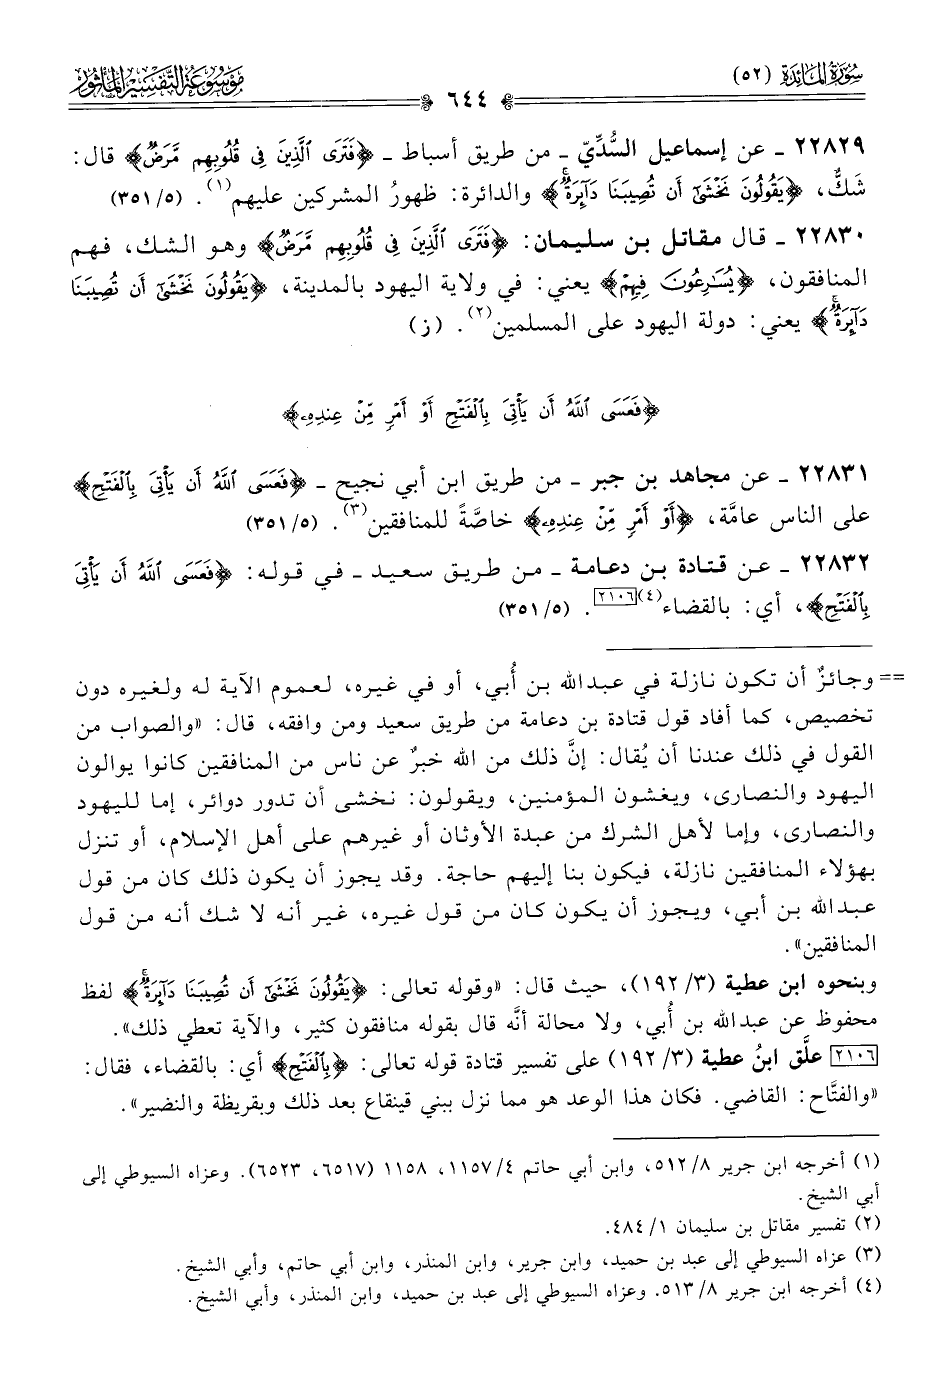 سُورَةُ المَائِدَة (٥٢)
مَوْسُوعَة التَّفْسِير المَأْثُور
٦٤٤
٢٢٨٢٩ ـ عن إسماعيل السُّدِّيّ ـ من طريق أسباط ـ ﴿فَتَرَى ٱلَّذِينَ فِي قُلُوبِهِم مَّرَضٌ﴾ قال:
شَكٌّ، ﴿يَقُولُونَ نَخْشَىٰٓ أَن تُصِيبَنَا دَآئِرَةٌۚ﴾ والدائرة: ظهورُ المشركين عليهم(١). (٣٥١/٥)
٢٢٨٣٠ ـ قال مقاتل بن سليمان: ﴿فَتَرَى ٱلَّذِينَ فِي قُلُوبِهِم مَّرَضٌ﴾ وهو الشك، فهم
المنافقون، ﴿يُسَٰرِعُونَ فِيهِمْ﴾ يعني: في ولاية اليهود بالمدينة، ﴿يَقُولُونَ نَخْشَىٰٓ أَن تُصِيبَنَا
دَآئِرَةٌۚ﴾ يعني: دولة اليهود على المسلمين(٢). (ز)
﴿فَعَسَى ٱللَّهُ أَن يَأْتِيَ بِٱلْفَتْحِ أَوْ أَمْرٍ مِّنْ عِندِهِۦ﴾
٢٢٨٣١ ـ عن مجاهد بن جبر ـ من طريق ابن أبي نجيح ـ ﴿فَعَسَى ٱللَّهُ أَن يَأْتِيَ بِٱلْفَتْحِ﴾
على الناس عامَّة، ﴿أَوْ أَمْرٍ مِّنْ عِندِهِۦ﴾ خاصَّةً للمنافقين(٣). (٣٥١/٥)
٢٢٨٣٢ ـ عن قتادة بن دعامة ـ من طريق سعيد ـ في قوله: ﴿فَعَسَى ٱللَّهُ أَن يَأْتِيَ
بِٱلْفَتْحِ﴾، أي: بالقضاء(٤)[٢١٠٦]. (٣٥١/٥)
== وجائزٌ أن تكون نازلة في عبدالله بن أُبي، أو في غيره، لعموم الآية له ولغيره دون
تخصيص، كما أفاد قول قتادة بن دعامة من طريق سعيد ومن وافقه، قال: «والصواب من
القول في ذلك عندنا أن يُقال: إنَّ ذلك من الله خبرٌ عن ناس من المنافقين كانوا يوالون
اليهود والنصارى، ويغشون المؤمنين، ويقولون: نخشى أن تدور دوائر، إما لليهود
والنصارى، وإما لأهل الشرك من عبدة الأوثان أو غيرهم على أهل الإسلام، أو تنزل
بهؤلاء المنافقين نازلة، فيكون بنا إليهم حاجة. وقد يجوز أن يكون ذلك كان من قول
عبدالله بن أبي، ويجوز أن يكون كان من قول غيره، غير أنه لا شك أنه من قول
المنافقين».
وبنحوه ابن عطية (٣/ ١٩٢)، حيث قال: «وقوله تعالى: ﴿يَقُولُونَ نَخْشَىٰٓ أَن تُصِيبَنَا دَآئِرَةٌۚ﴾ لفظ
محفوظ عن عبدالله بن أُبي، ولا محالة أنَّه قال بقوله منافقون كثير، والآية تعطي ذلك».
[٢١٠٦] علَّق ابنُ عطية (٣/ ١٩٢) على تفسير قتادة قوله تعالى: ﴿بِٱلْفَتْحِ﴾ أي: بالقضاء، فقال:
«والفتَّاح: القاضي. فكان هذا الوعد هو مما نزل ببني قينقاع بعد ذلك وبقريظة والنضير».
(١) أخرجه ابن جرير ٨/ ٥١٢، وابن أبي حاتم ٤/ ١١٥٧، ١١٥٨ (٦٥١٧، ٦٥٢٣). وعزاه السيوطي إلى
أبي الشيخ.
(٢) تفسير مقاتل بن سليمان ١/ ٤٨٤.
(٣) عزاه السيوطي إلى عبد بن حميد، وابن جرير، وابن المنذر، وابن أبي حاتم، وأبي الشيخ.
(٤) أخرجه ابن جرير ٨/ ٥١٣. وعزاه السيوطي إلى عبد بن حميد، وابن المنذر، وأبي الشيخ.